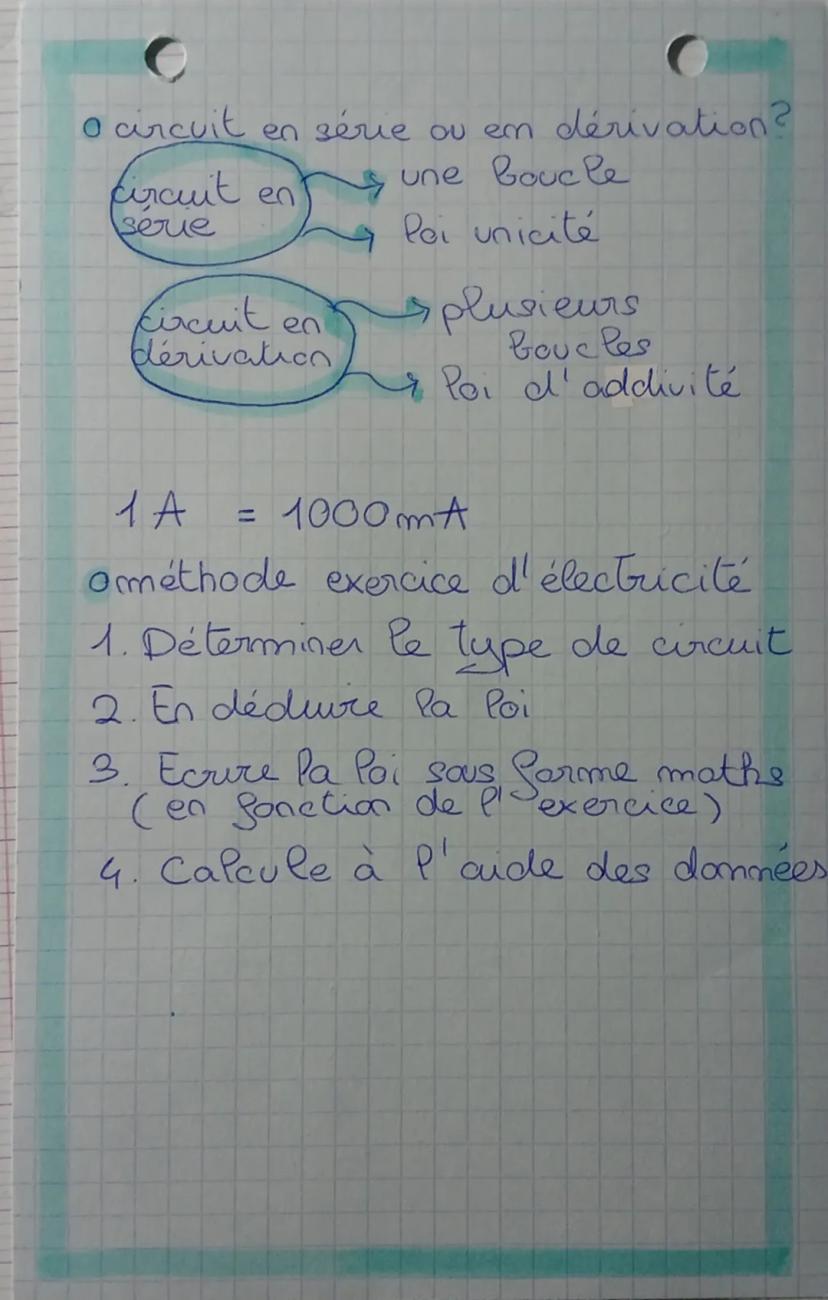 circuit en série ou en dérivation?
circuit en
série
une boucle
loi unicité
circuit en
dérivation
plusieurs
boucles
loi d'addivité
1 A = 1000 mA
méthode exercice d'électricité
1. Déterminer le type de circuit
2. En déduire la loi
3. Ecrire la loi sous forme maths
(en fonction de l'exercice)
4. Calcule à l'aide des données